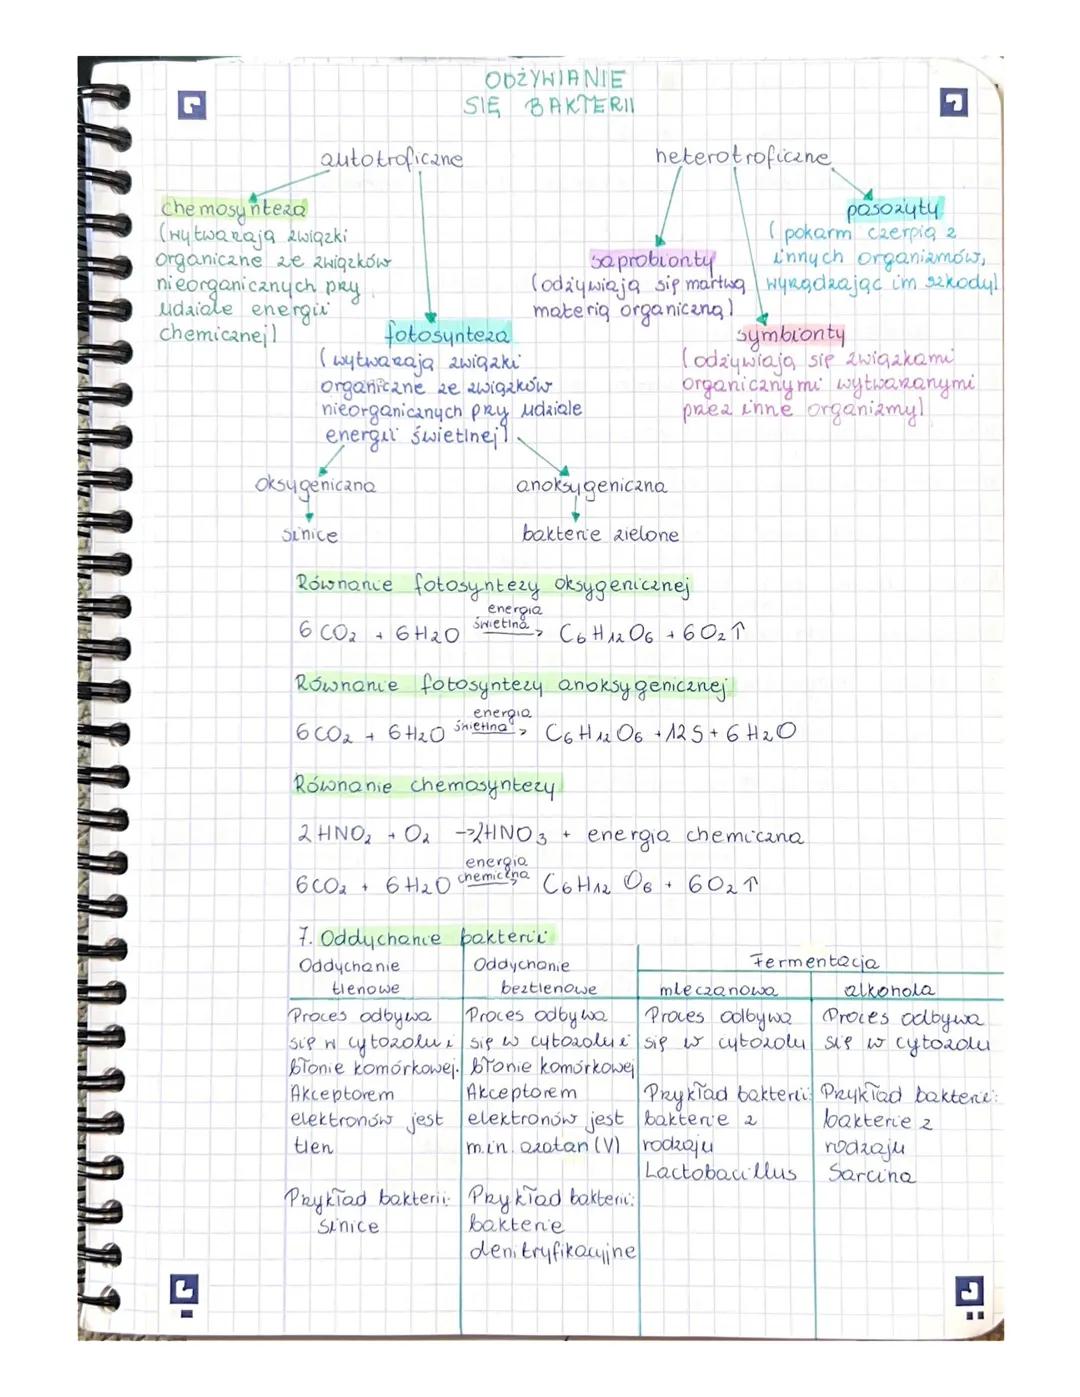 ODŻYWIANIE
SIĘ BAKTERII
autotroficzne
heterotroficzne
chemosynteza
(wytwarzają związki
organiczne ze związków
nieorganicznych przy
udziale energii
chemicznej)
fotosynteza
(wytwarzają związki
organiczne ze związków
nieorganicznych przy udziale
energii świetlnej)
saprobionty
(odżywiają się martwą
materią organiczną)
pasożyty
(pokarm czerpią z
innych organizmów,
wyrządzając im szkody)
symbionty
(odżywiają się związkami
organicznymi wytwarzanymi
przez inne organizmy)
oksygeniczna
anoksygeniczna
sinice
bakterie zielone
Równanie fotosyntezy oksygenicznej
energia
świetlna
6 CO₂ + 6H2O → C6H12O6 + 6O₂↑
Równanie fotosyntezy anoksygenicznej
energia
świetlna
6CO₂ + 6H2O → C6H12O6 + 12S + 6H2O
Równanie chemosyntezy
2HNO₂ + O₂ → 2HNO3 + energia chemiczna
energia
chemiczna
6CO₂ + 6H2O → C6H12O6 + 6O₂↑
7. Oddychanie bakterii
Oddychanie
tlenowe
Oddychanie
beztlenowe
Fermentacja
mleczanowa
alkohola
Proces odbywa
się w cytozolu i
błonie komórkowej.
Akceptorem
elektronów jest
tlen
Przykład bakterii:
sinice
Proces odbywa
się w cytozolu i
błonie komórkowej
Akceptorem
elektronów jest
m.in. azotan (V)
Przykład bakterii:
bakterie
denitryfikacyjne
Proces odbywa
się w cytozolu
Przykład bakterii:
bakterie z
rodzaju
Lactobacillus
Proces odbywa
się w cytozolu
Przykład bakterii:
bakterie z
rodzaju
Sarcina